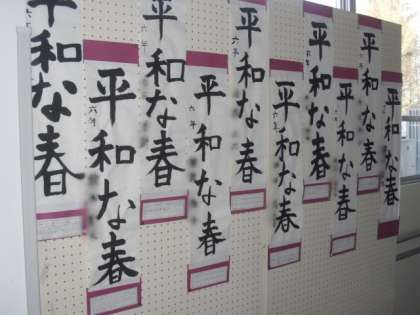 平和な春
平和な春
六年
平和な春
六年
平和な春
六年
平和な春
平和な春
六年
平和な春
平和な春
平和な春
平和な春